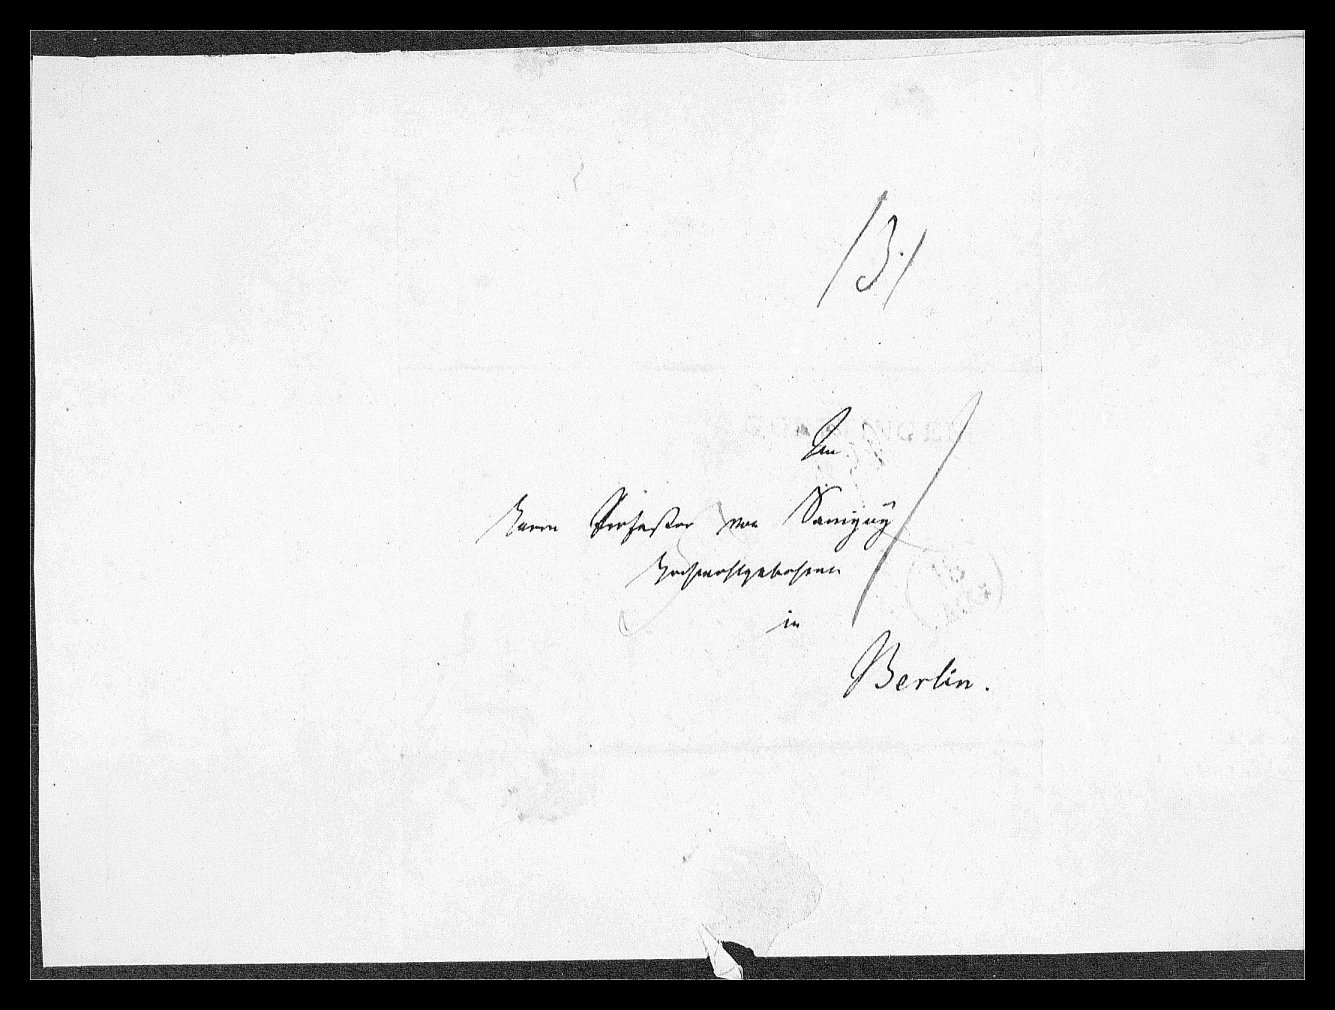 /3./
An
Herrn Professor von Savigny
Hochwohlgebohren
in
Berlin.